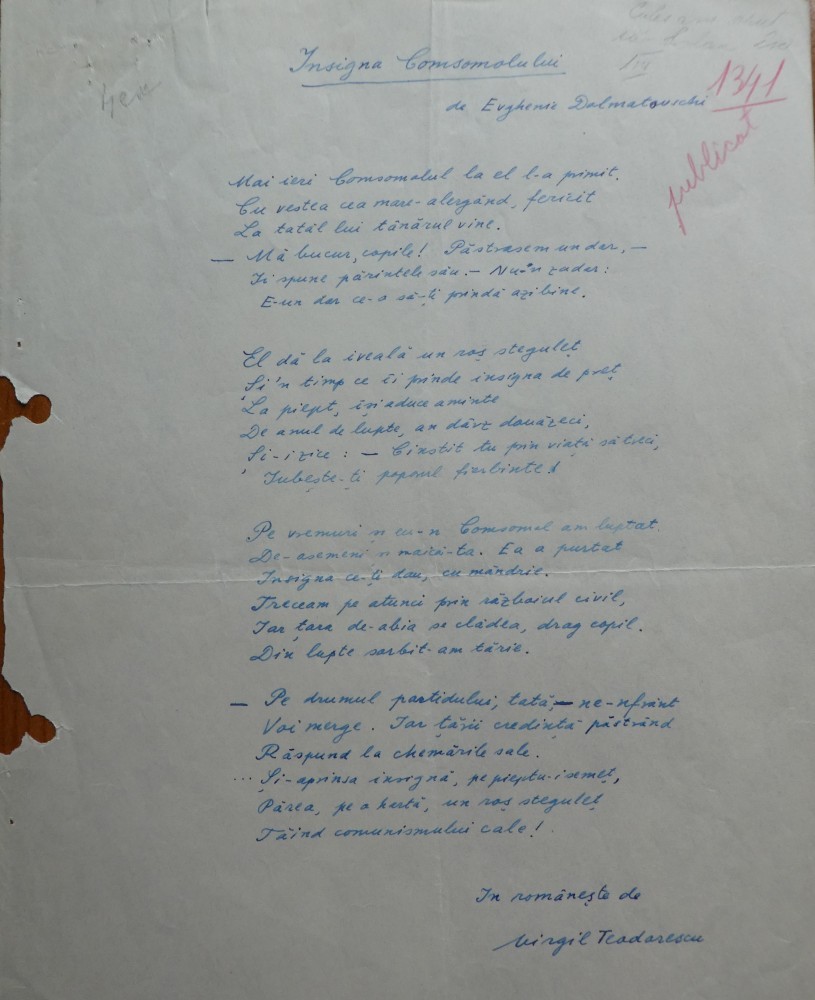 Insigna Comsomolului
1341
de Evghenie Dolmatovschi
publicat
Mai ieri Comsomolul la el l-a primit.
Cu vestea cea mare-alergând, fericit
La tatăl lui tânărul vine.
— Mă bucur, copile! Păstrasem un dar, —
Ii spune părintele său. — Nu'n zadar:
E-un dar ce-o să-ți prindă azi bine.
El dă la iveală un roș steguleț
Și'n timp ce îi prinde insigna de preț
La piept, își aduce aminte
De anul de lupte, an dârz douăzeci,
Și-i zice: — Cinstit tu prin viață să treci,
Iubește-ți poporul fierbinte!
Pe vremuri și eu-n Comsomol am luptat.
De-asemeni și maică-ta. Ea a purtat
Insigna ce-ți dau, cu mândrie.
Treceam pe atunci prin războiul civil,
Iar țara de-abia se clădea, drag copil.
Din lupte sorbit-am tărie.
— Pe drumul partidului, tată, — ne-nfrânt
Voi merge. Iar țării credință păstrând
Răspund la chemările sale.
... Și-aprinsa insignă, pe pieptu-i semeț,
Părea, pe o hartă, un roș steguleț
Tăind comunismului cale!
In românește de
Virgil Teodorescu